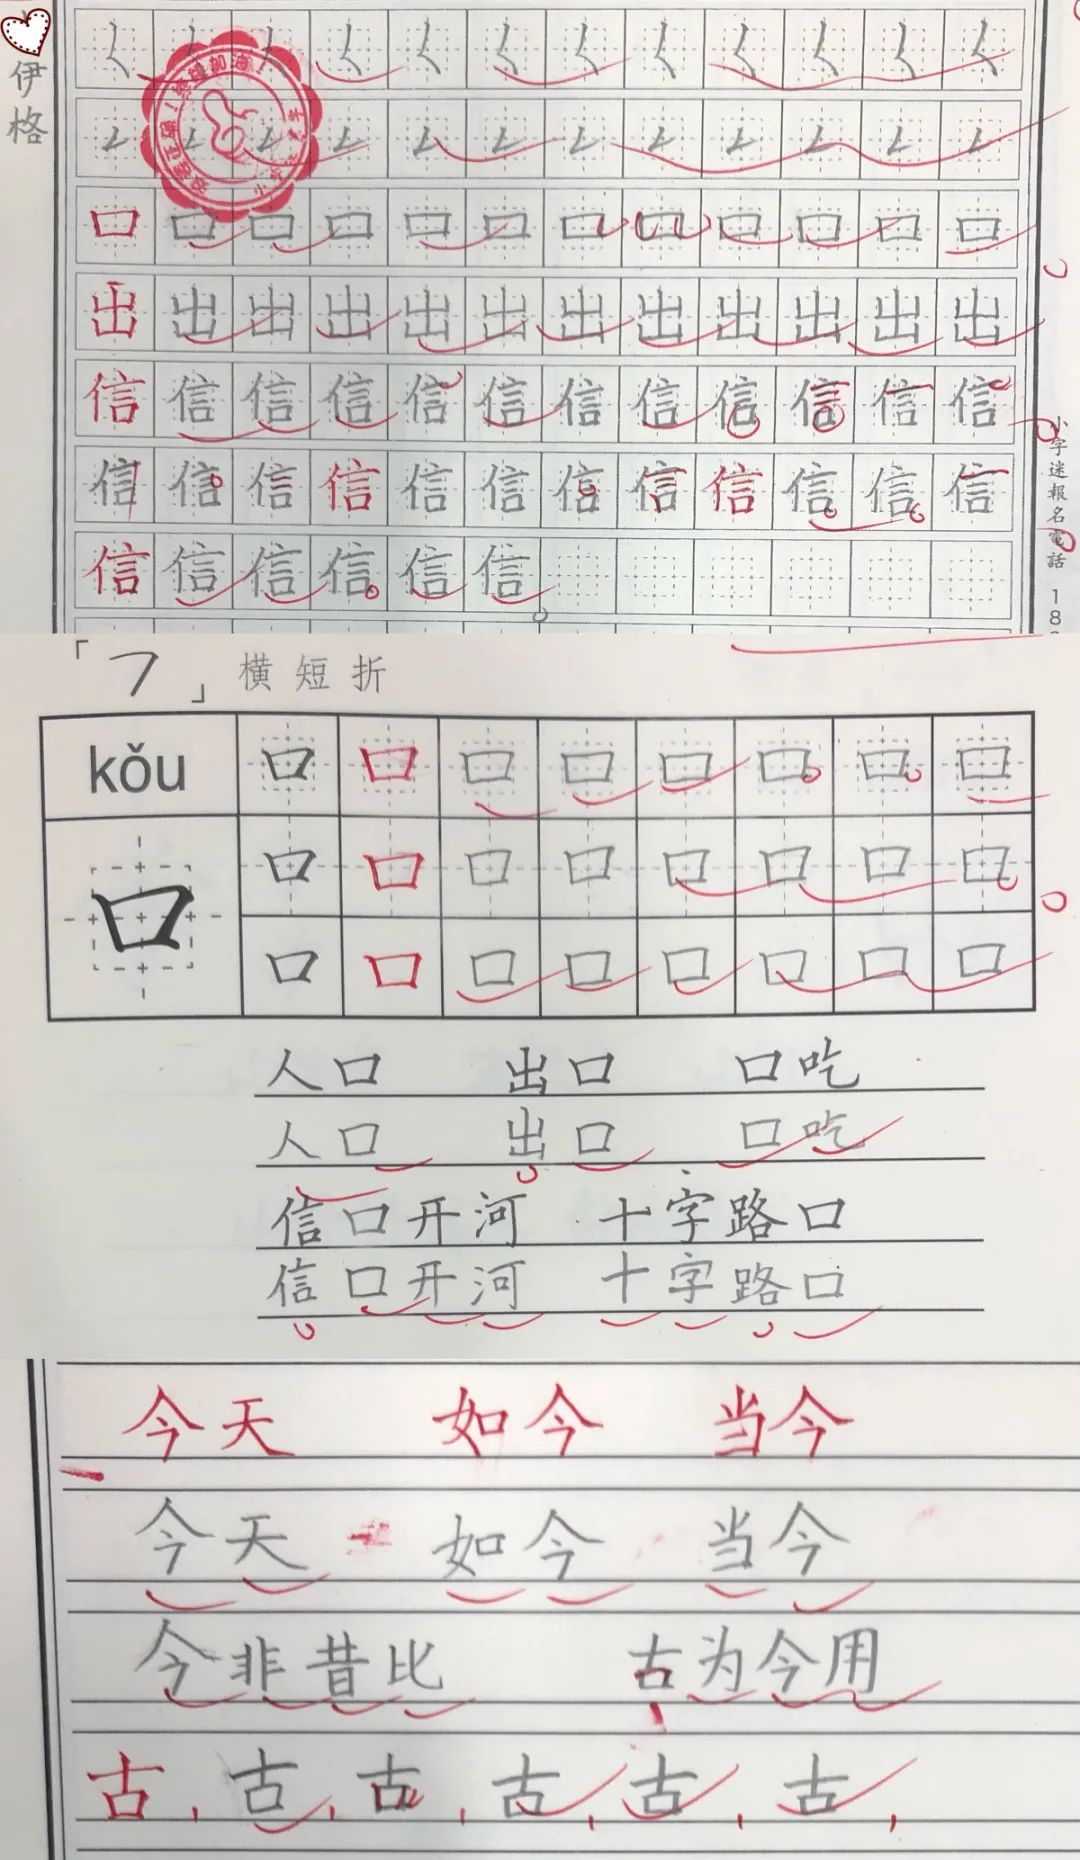 伊格
口口口口口口口口口口口口
出出出出出出出出出出出出
信信信信信信信信信信信信
信信信信信信信信信信信信
信信信信信信
小字迷報名電話 18
「㇕」横短折
kǒu 口口口口口口口口
口 口口口口口口口口
口口口口口口口口
人口 出口 口吃
人口 出口 口吃
信口开河 十字路口
信口开河 十字路口
今天 如今 当今
今天 如今 当今
今非昔比 古为今用
古,古,古,古,古,古,